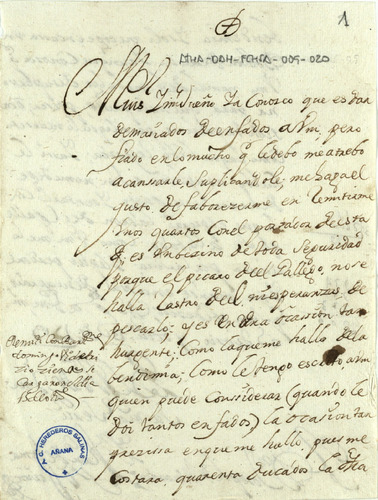 1
AHA-DDH-FCHSA-009-020
Amigo y dueño Ya Conosco que es dar
demasiados de enfados a Vm, pero
fiado en lo mucho q le debo me atrebo
a cansarle, Suplicandole, me haga el
gusto de faborezerme en
Unos quartos Con el portador de esta
q es un bezino de toda seguridad
porque el picaro de el Gallego, no se
halla rastro de el, ni esperanzas de
pescarlo; y es en Una ocasion tan
hurgente, Como la que me hallo de la
bendimia; Como le tengo escrito a Vm
quien puede Considerar (quando le
doi tantos enfados) la ocasion tan
prezissa en que me hallo, pues me
Costara, quarenta ducados la
A. G. HEREDEROS SALINAS
ARANA